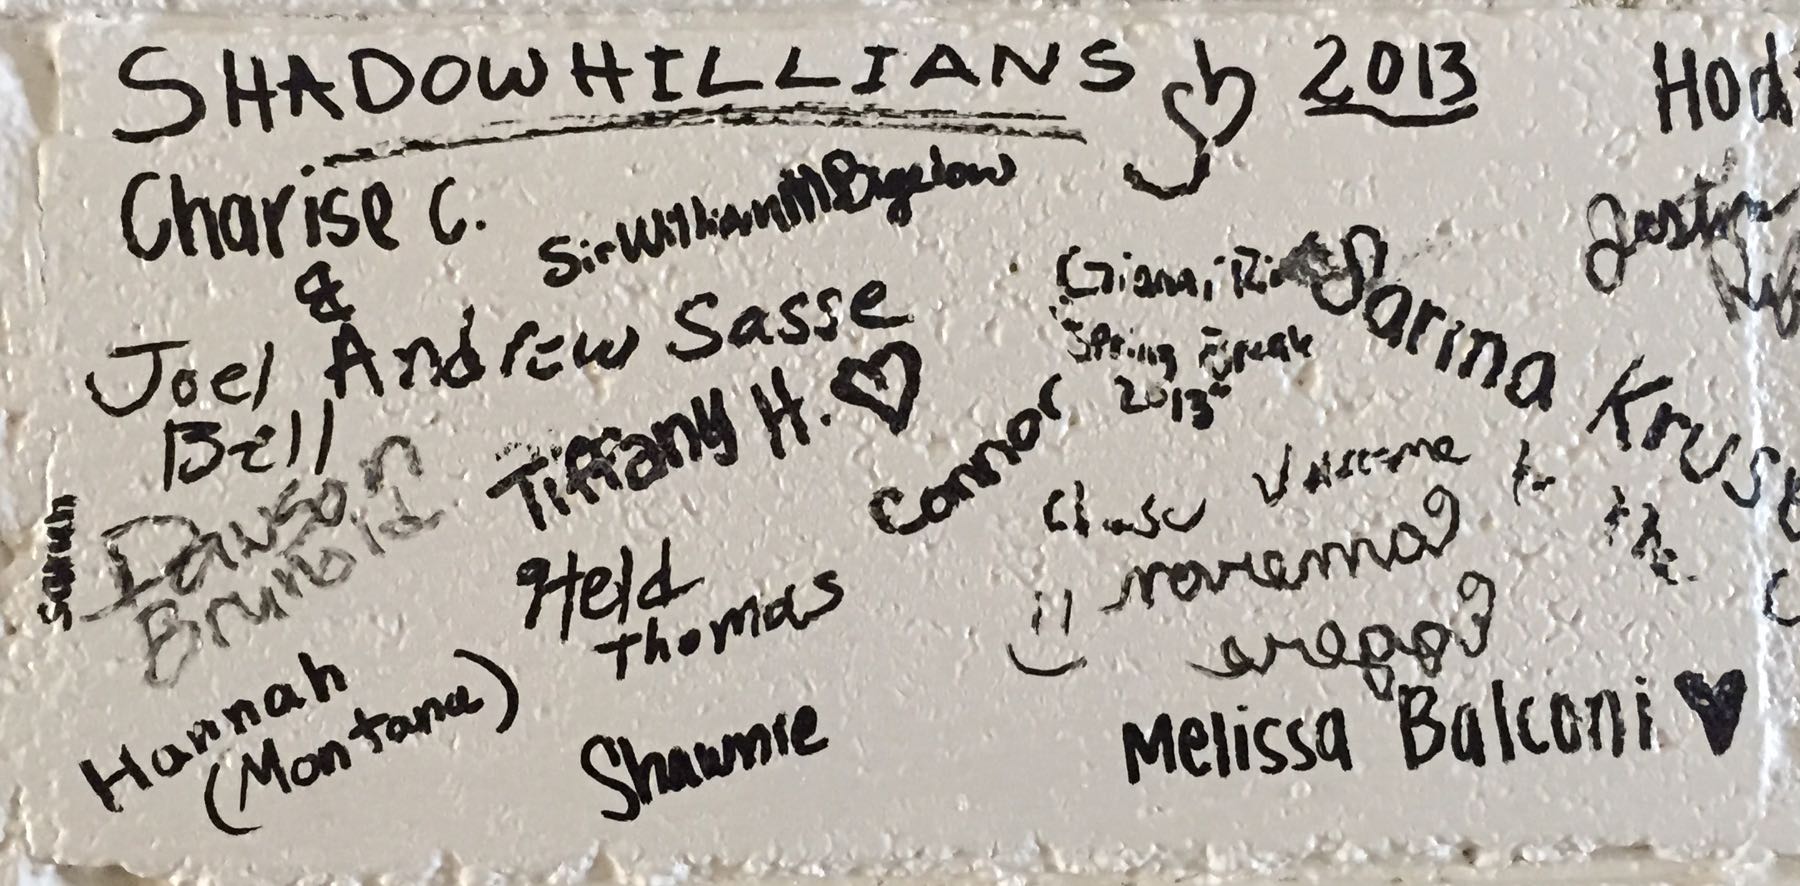 SHADOWHILLIANS 2013
Charise C.
&
Sir William M Bigelow
Joel
Bell
Andrew Sasse
Tiffany H.
Gianni
Spring Break
2013
Sarina Kruse
Connor
Sarah
Dawson
Held
Thomas
Chase
to the
Hannah
(Montana)
Shawnie
Melissa Balconi